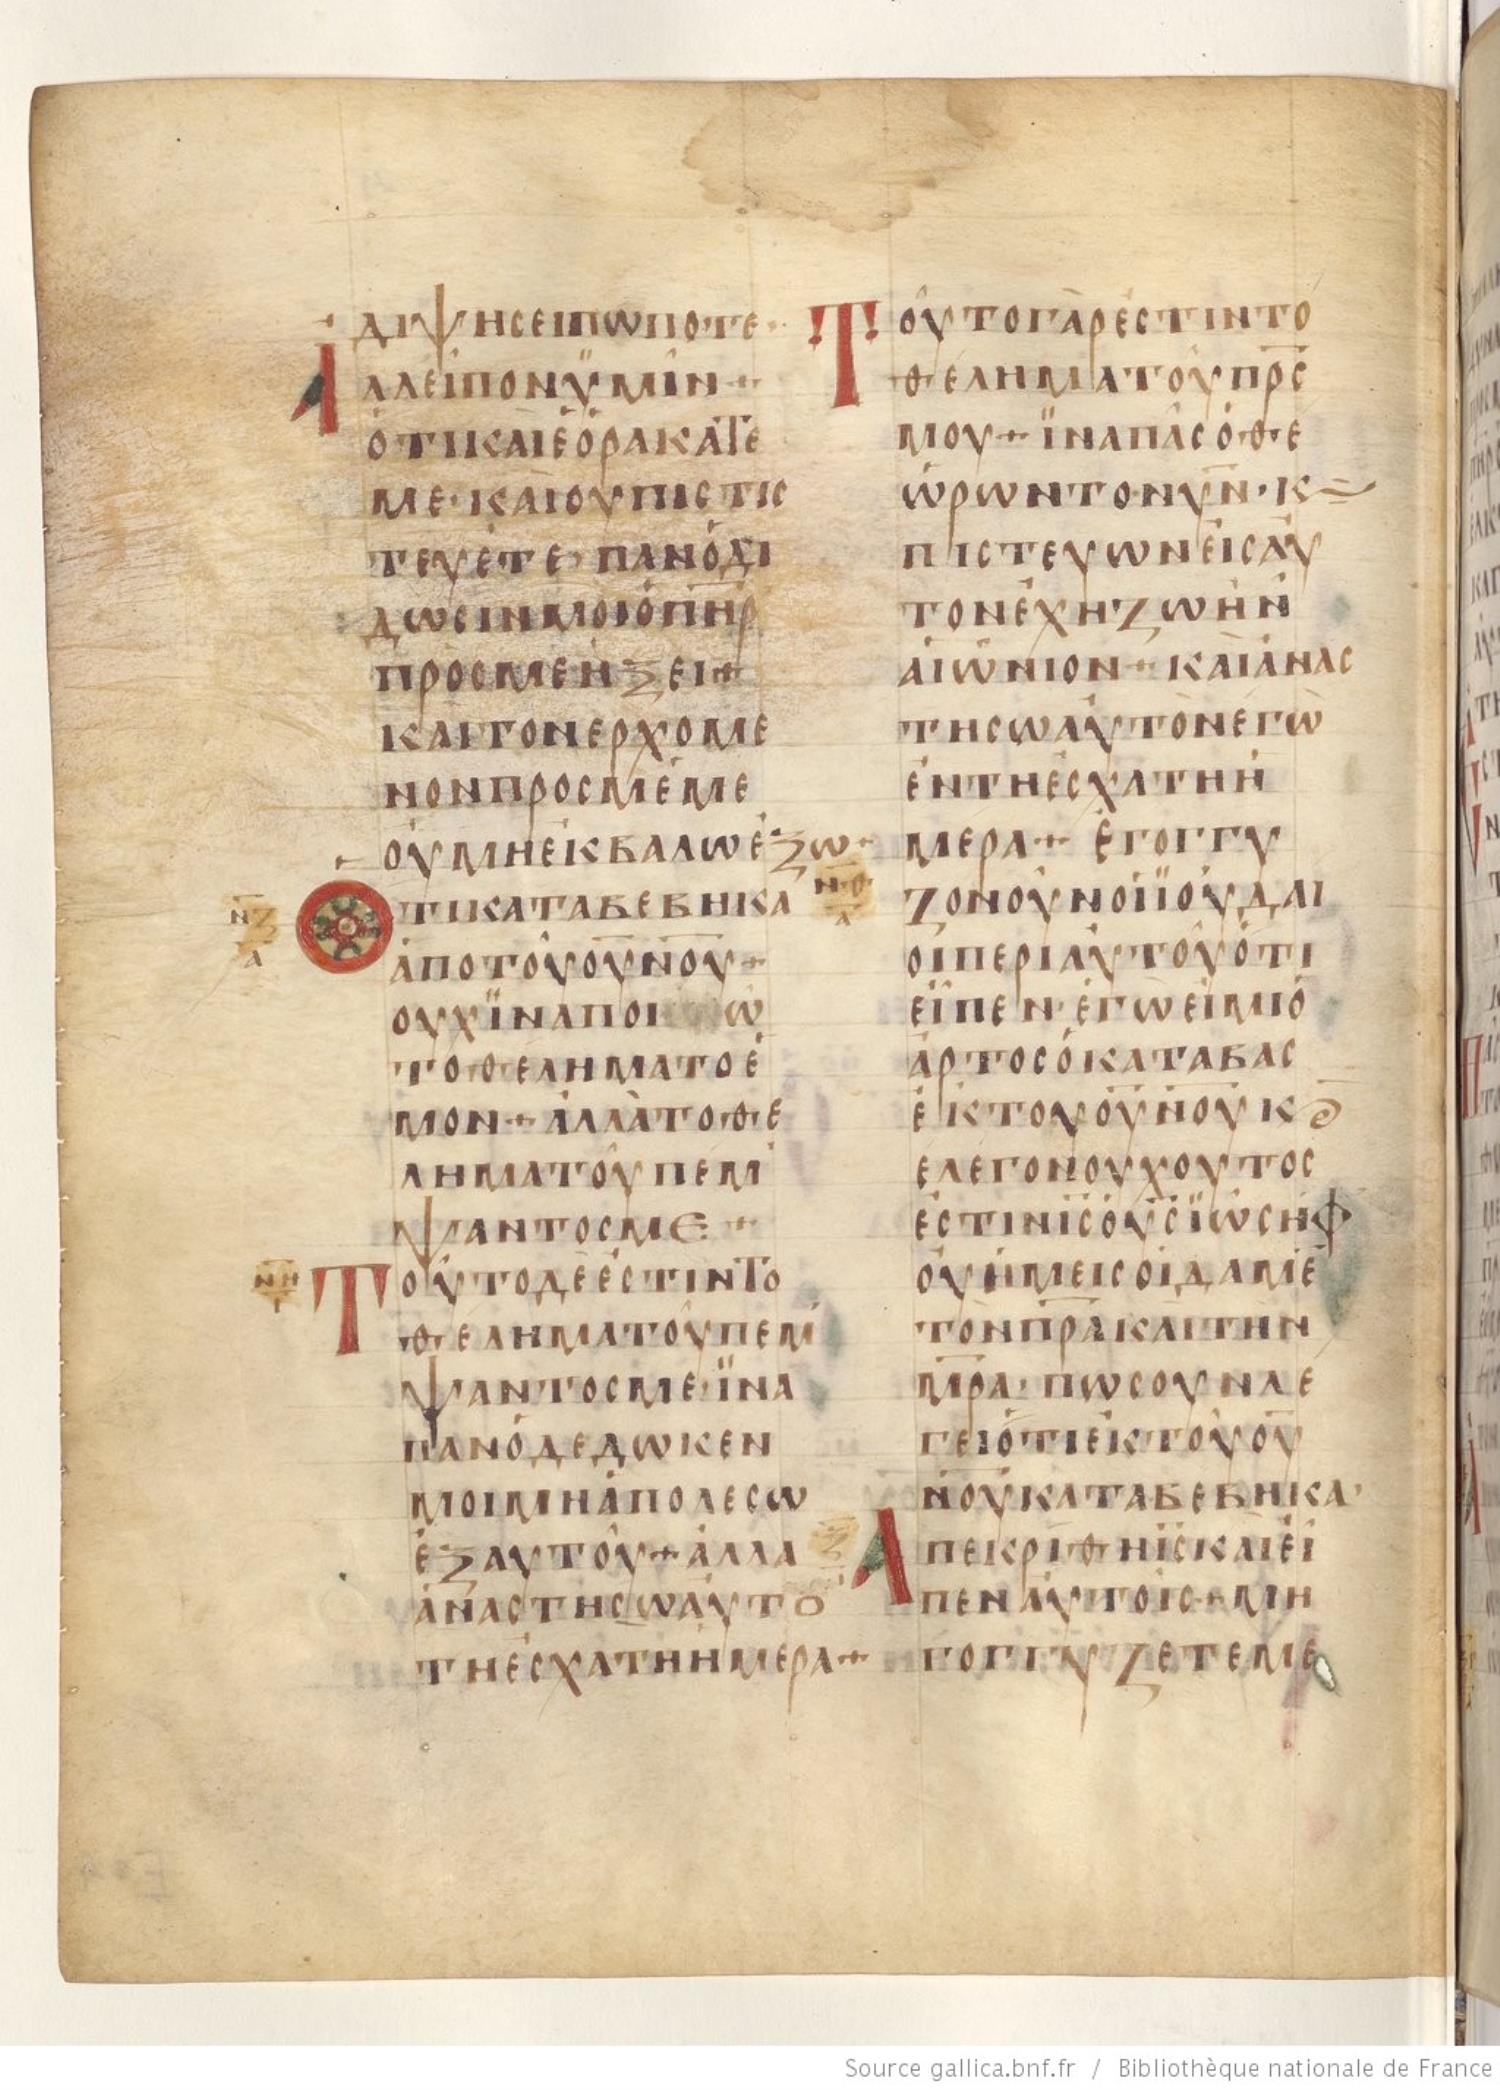 ΔΙΨΗϹΕΙΠΩΠΟΤΕ·
ΑΛΛΕΙΠΟΝΫΜΙΝ+
ΟΤΙΚΑΙΕΟΡΑΚΑΤΕ
ΜΕ·ΚΑΙΟΥΠΙϹΤΙϹ
ΤΕΥΕΤΕ· ΠΑΝΟΔΙ
ΔΩϹΙΝΜΟΙΟΠΗΡ
ΠΡΟϹΜΕΗΞΕΙ+
ΚΑΙΤΟΝΕΡΧΟΜΕ
ΝΟΝΠΡΟϹΜΕΜΕ
ΟΥΜΗΕΚΒΑΛΩΕΞΩ+
ΝΖ
Α
ΟΤΙΚΑΤΑΒΕΒΗΚΑ
ΑΠΟΤΟΥΟΥΝΟΥ+
ΟΥΧΪΝΑΠΟΙ Ω
ΤΟΘΕΛΗΜΑΤΟΕ
ΜΟΝ+ΑΛΛΑΤΟΘΕ
ΛΗΜΑΤΟΥΠΕΜ
ΨΑΝΤΟϹΜΕ+
ΝΗ
ΤΟΥΤΟΔΕΕϹΤΙΝΤΟ
ΘΕΛΗΜΑΤΟΥΠΕΜ
ΨΑΝΤΟϹΜΕ·ΪΝΑ
ΠΑΝΟΔΕΔΩΚΕΝ
ΜΟΙΜΗΑΠΟΛΕϹΩ
ΕΞΑΥΤΟΥ+ΑΛΛΑ
ΑΝΑϹΤΗϹΩΑΥΤΟ
ΤΗΕϹΧΑΤΗΗΜΕΡΑ+
ΤΟΥΤΟΓΑΡΕϹΤΙΝΤΟ
ΘΕΛΗΜΑΤΟΥΠΡϹ
ΜΟΥ+ΪΝΑΠΑϹΟΘΕ
ΩΡΩΝΤΟΝΥΝ·Κ
ΠΙϹΤΕΥΩΝΕΙϹΑΥ
ΤΟΝΕΧΗΖΩΗΝ
ΑΙΩΝΙΟΝ+ΚΑΙΑΝΑϹ
ΤΗϹΩΑΥΤΟΝΕΓΩ
ΕΝΤΗΕϹΧΑΤΗΗ
ΜΕΡΑ+ ΕΓΟΓΓΥ
ΝΘ
Α
ΖΟΝΟΥΝΟΪΪΟΥΔΑΙ
ΟΙΠΕΡΙΑΥΤΟΥΟΤΙ
ΕΪΠΕΝ·ΕΓΩΕΙΜΙΟ
ΑΡΤΟϹΟΚΑΤΑΒΑϹ
ΕΚΤΟΥΟΥΝΟΥΚ
ΕΛΕΓΟΝΟΥΧΟΥΤΟϹ
ΕϹΤΙΝΙϹΟΥϹΪΩϹΗΦ
ΟΥΗΜΕΙϹΟΙΔΑΜΕ
ΤΟΝΠΡΑΚΑΙΤΗΝ
ΜΡΑ· ΠΩϹΟΥΝΛΕ
ΓΕΙΟΤΙΕΚΤΟΥΟΥ
ΝΟΥΚΑΤΑΒΕΒΗΚΑ·
Ξ
ΑΠΕΚΡΙΘΗΪϹΚΑΙΕΙ
ΠΕΝΑΥΤΟΙϹ+ΜΗ
ΓΟΓΓΥΖΕΤΕΜΕ
Source gallica.bnf.fr / Bibliothèque nationale de France